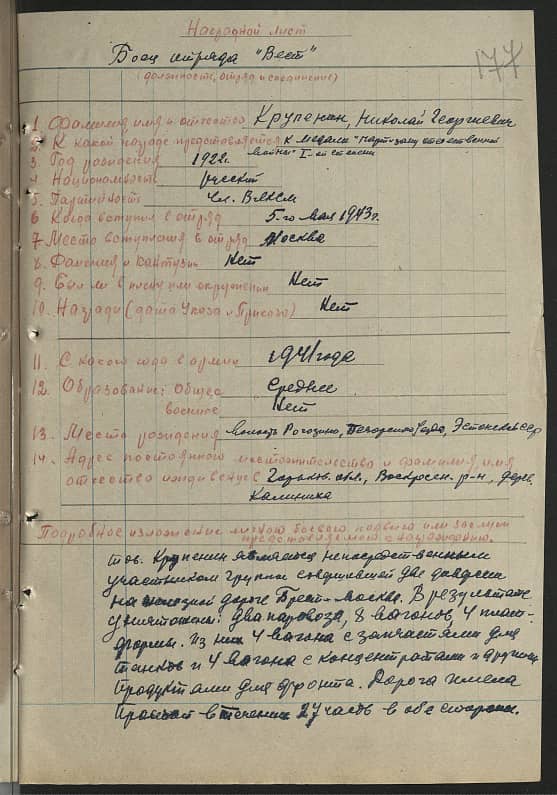 Наградной лист
Боец отряда "Вест"
177
(должность, отряд и соединение)
1. Фамилия имя и отчество Крупенин, Николай Георгиевич
2. К какой награде представляется к медали "Партизану отечественной
войны" I-ой степени
3. Год рождения 1922г.
4. Национальность русский
5. Партийность Чл. ВЛКСМ
6 Когда вступил в отряд 5-го мая 1943г.
7 Место вступления в отряд Москва
8. Ранения и контузии Нет
9. Был ли в плену или окружении Нет
10. Награды (дата Указа и Приказа) Нет
11. С какого года в армии 1941 года
12. Образование: Общее Среднее
военное Нет
13. Место рождения Рогозино, Печорского Эстонской ССР
14. Адрес постоянного местожительства и фамилия, имя
отчество иждивенцев Горьков. обл., Воскресен. р-н, дерев.
Калиниха
Подробное изложение личного боевого подвига или заслуги
представляемого к награждению.
тов. Крупенин являлся непосредственным
участником группы совершившей две диверсии
на железной дороге Брест-Москва. В результате
уничтожены: два паровоза, 8 вагонов, 4 плат-
формы. Из них 4 вагона с запчастями для
танков и 4 вагона с концентратами и другими
продуктами для фронта. Дорога имела
простой в течении 27 часов в обе стороны.